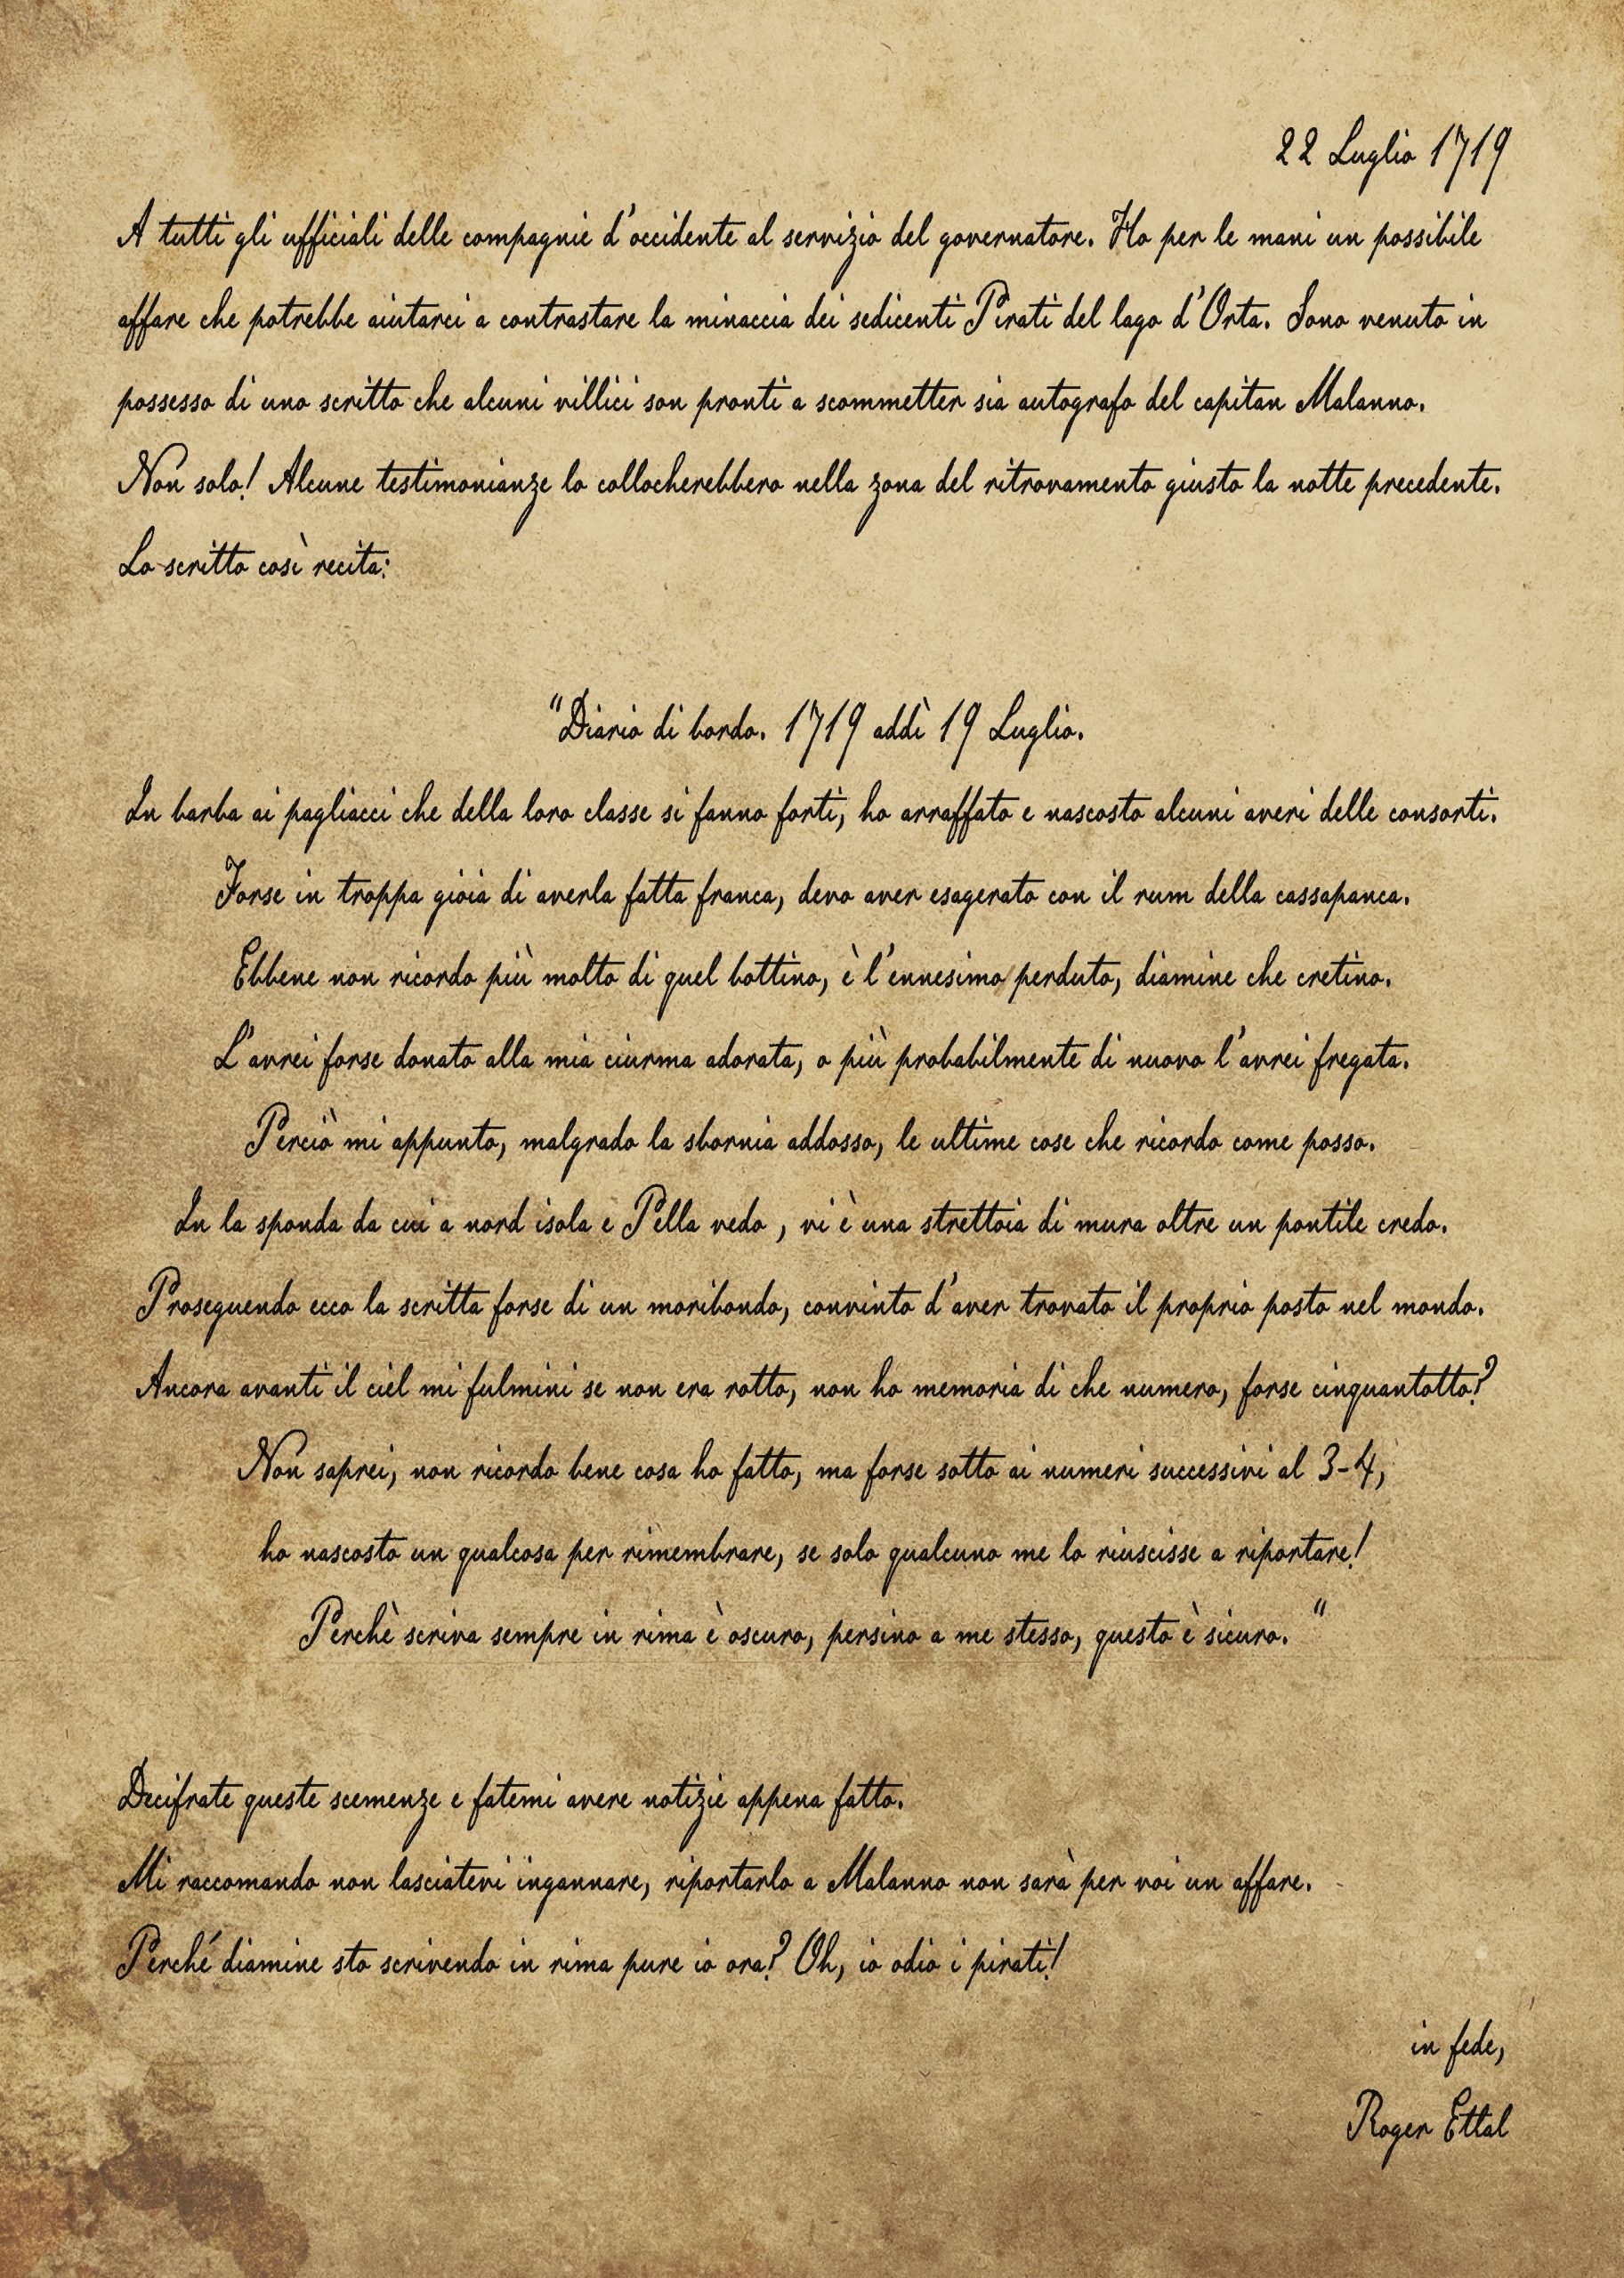 22 Luglio 1719
A tutti gli ufficiali delle compagnie d'occidente al servizio del governatore. Ho per le mani un possibile
affare che potrebbe aiutarci a contrastare la minaccia dei sedicenti Pirati del lago d'Orta. Sono venuto in
possesso di uno scritto che alcuni villici son pronti a scommetter sia autografo del capitan Malanno.
Non solo! Alcune testimonianze lo collocherebbero nella zona del ritrovamento giusto la notte precedente.
Lo scritto così recita:
"Diario di bordo. 1719 addì 19 Luglio.
In barba ai pagliacci che della loro classe si fanno forti, ho arraffato e nascosto alcuni averi delle consorti.
Forse in troppa gioia di averla fatta franca, devo aver esagerato con il rum della cassapanca.
Ebbene non ricordo più molto di quel bottino, è l'ennesimo perduto, diamine che cretino.
L'avrei forse donato alla mia ciurma adorata, o più probabilmente di nuovo l'avrei fregata.
Perciò mi appunto, malgrado la sbornia addosso, le ultime cose che ricordo come posso.
In la sponda da cui a nord isola e Pella vedo , vi è una strettoia di mura oltre un pontile credo.
Proseguendo ecco la scritta forse di un moribondo, convinto d'aver trovato il proprio posto nel mondo.
Ancora avanti il ciel mi fulmini se non era rotto, non ho memoria di che numero, forse cinquantotto?
Non saprei, non ricordo bene cosa ho fatto, ma forse sotto ai numeri successivi al 3-4,
ho nascosto un qualcosa per rimembrare, se solo qualcuno me lo riuscisse a riportare!
Perchè scriva sempre in rima è oscuro, persino a me stesso, questo è sicuro. "
Decifrate queste scemenze e fatemi avere notizie appena fatto.
Mi raccomando non lasciatevi ingannare, riportarlo a Malanno non sarà per voi un affare.
Perché diamine sto scrivendo in rima pure io ora? Oh, io odio i pirati!
in fede,
Roger Ettal